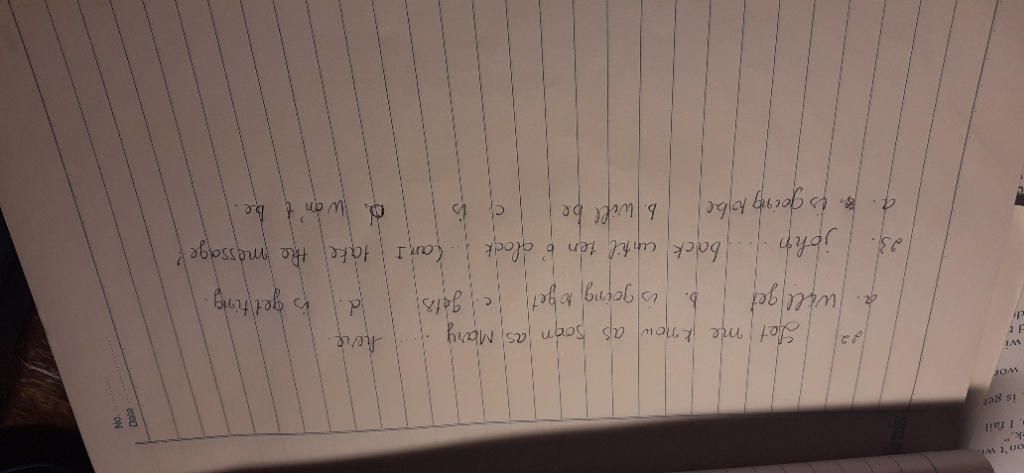 No.
Date
22 Let me know as soon as Mary .... here
a. will get b. is going to get c. gets d. is getting.
23. john ..... back until ten o'clock... Can I take the message?
a. is going to be b. will be c. is d. won't be.
on't wi
k,"
. I fail
s is get
wor
wi